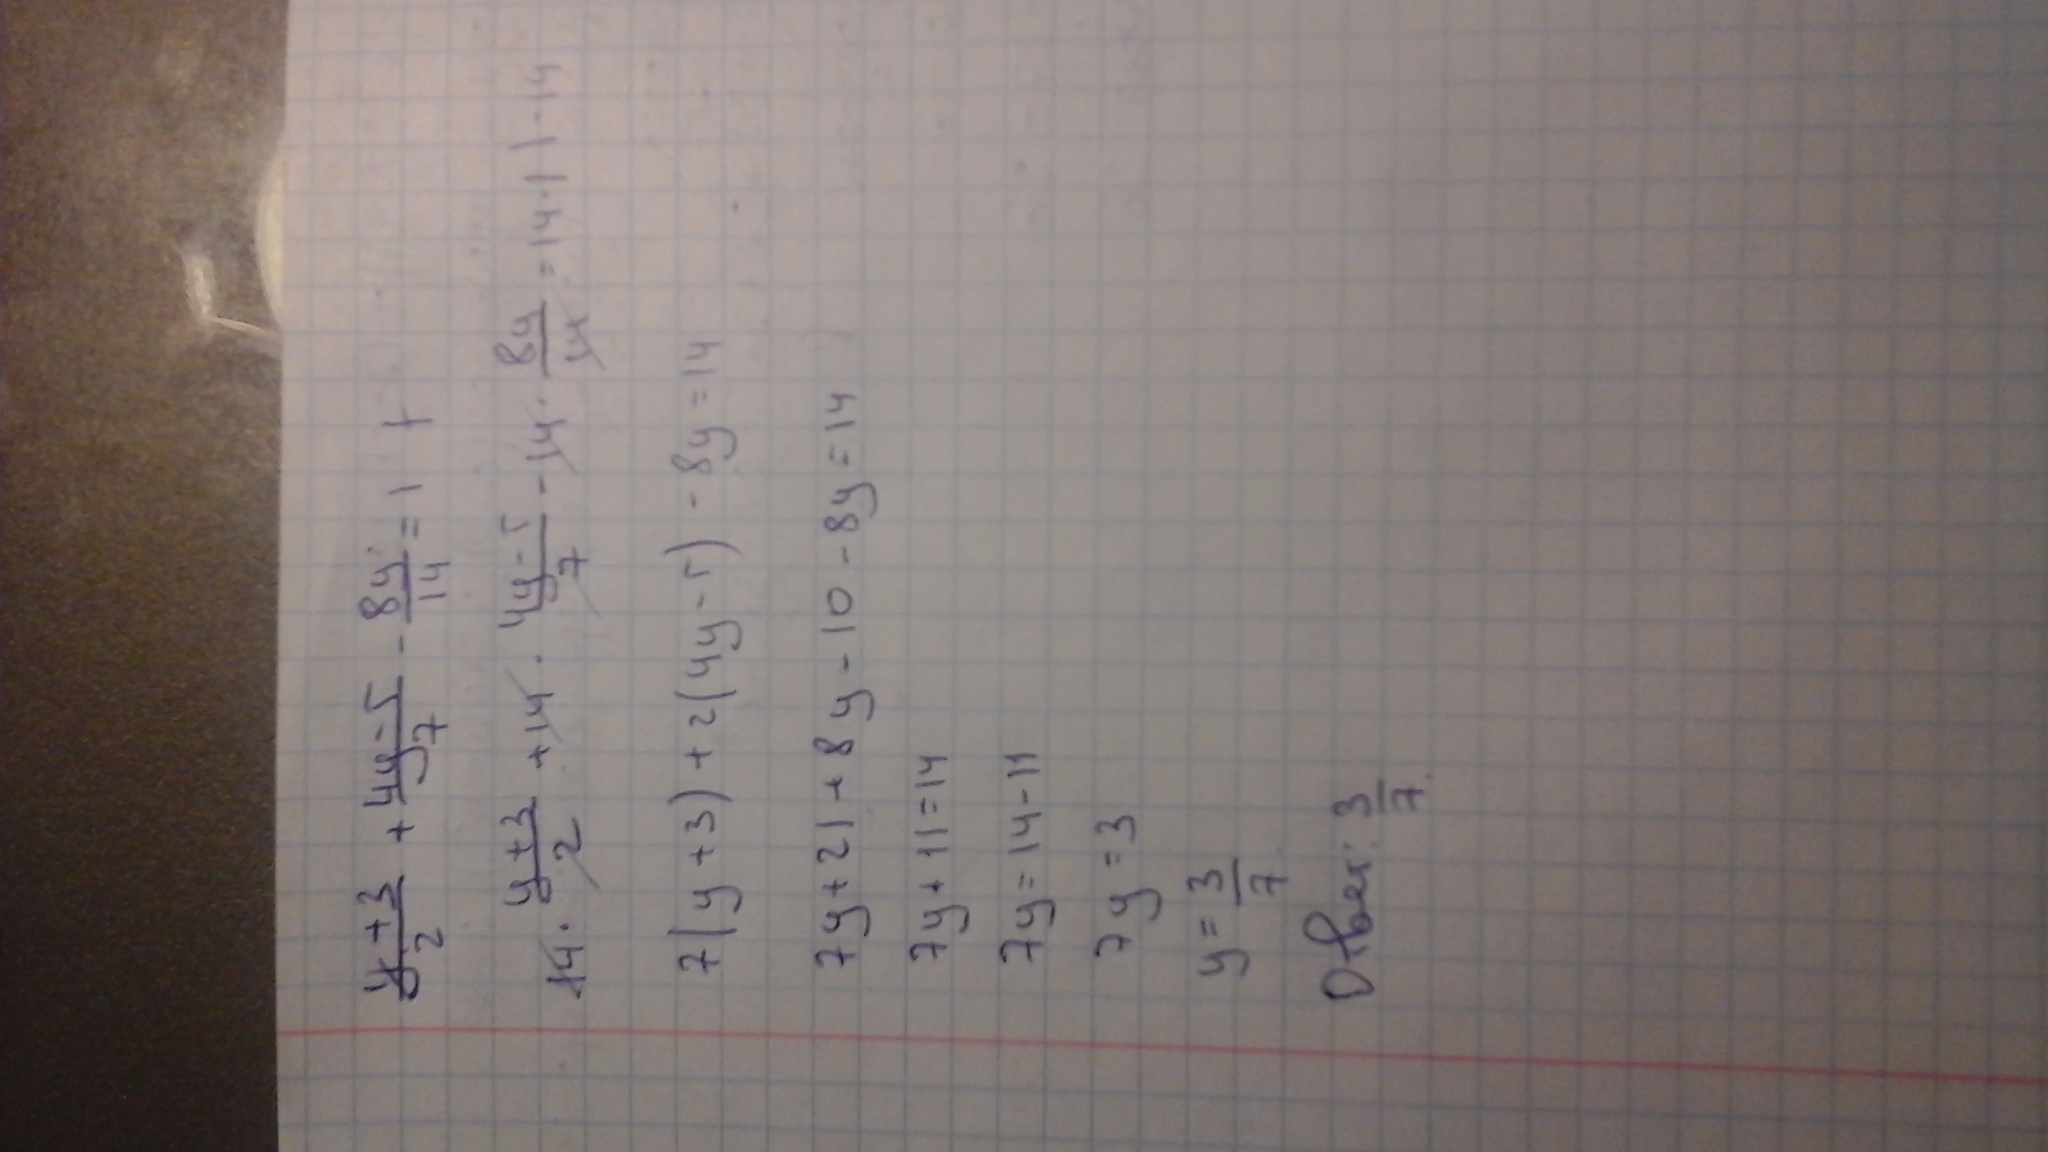 (y+3)/2 + (4y-5)/7 - 8y/14 = 1
14 · (y+3)/2 + 14 · (4y-5)/7 - 14 · 8y/14 = 14·1 | ·14
7(y+3)+2(4y-5)-8y=14
7y+21+8y-10-8y=14
7y+11=14
7y=14-11
7y=3
y=3/7
Ответ: 3/7.